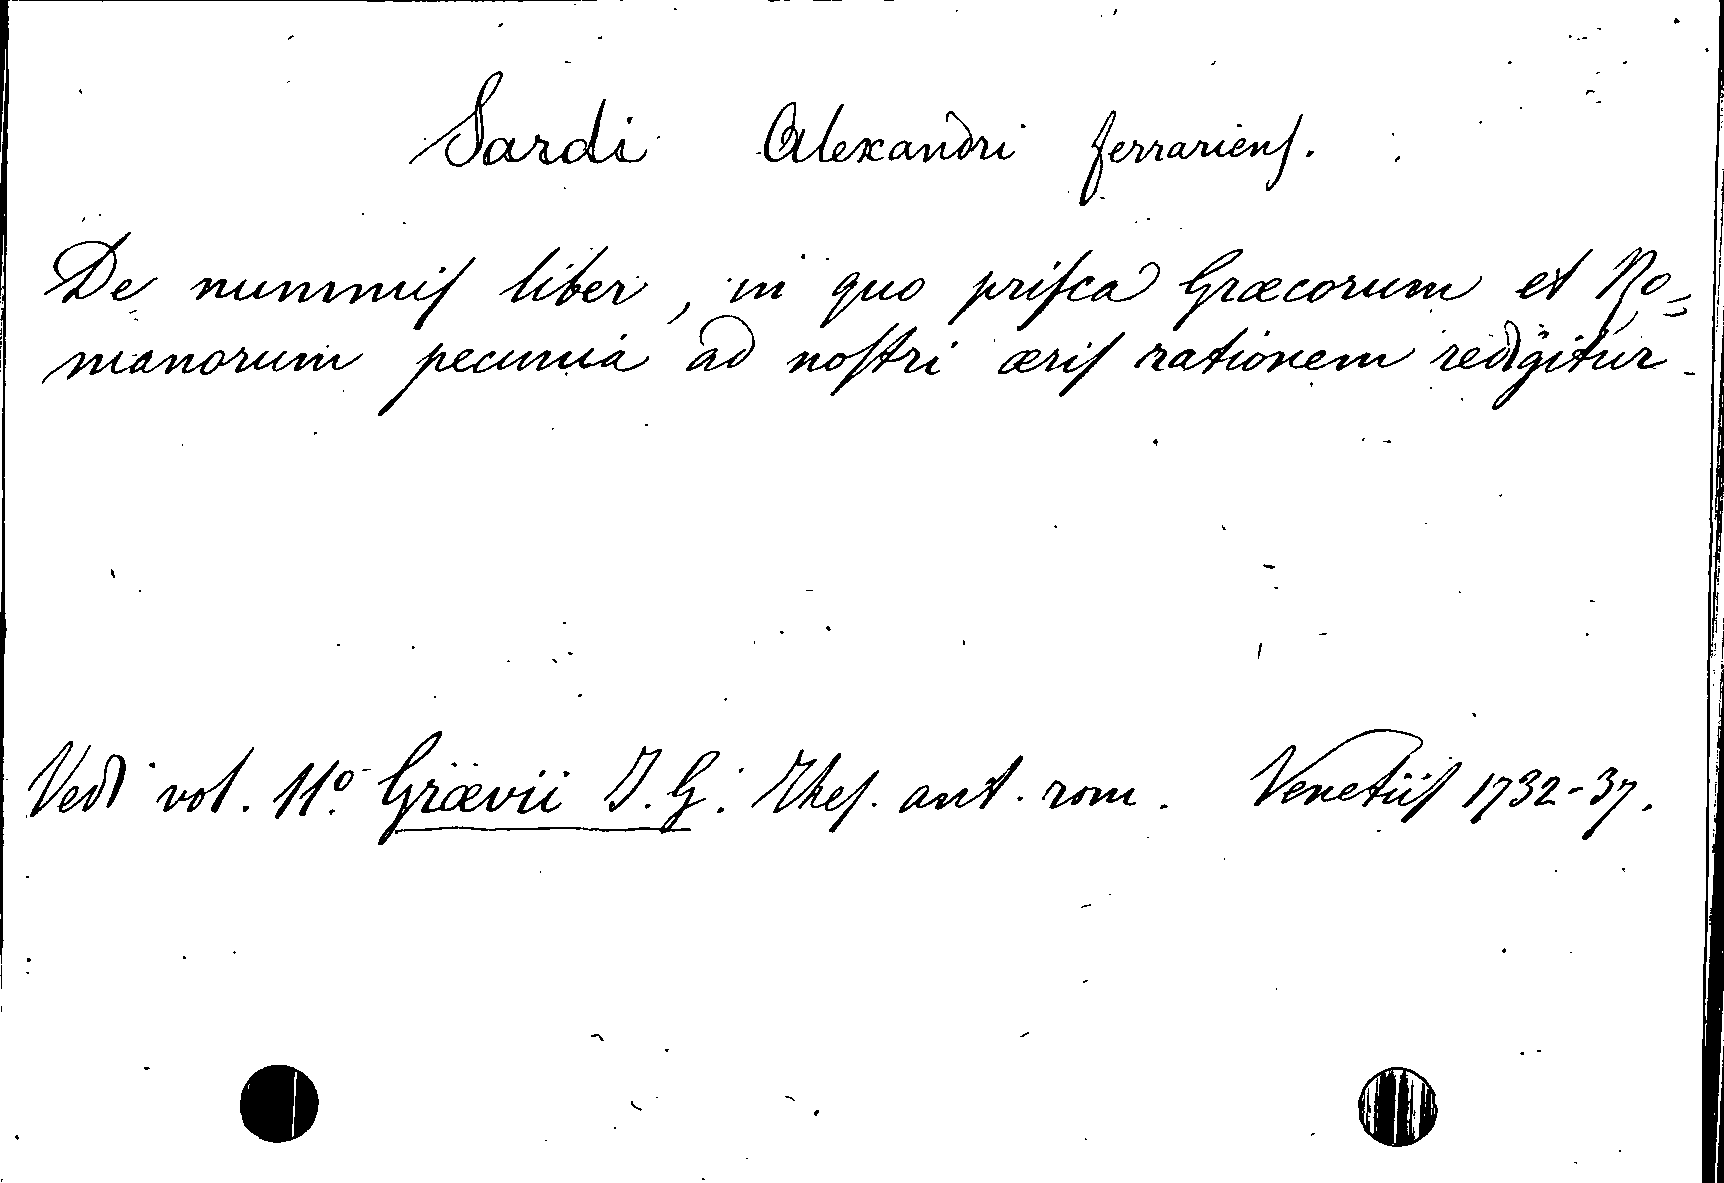 Sardi Alexandri ferrarienſ.
De nummiſ liber, in quo priſca Græcorum et Ro=
manorum pecunia ad noſtri æriſ rationem redigitur.
Vedi vol. 11.º Grævii J. G. Theſ. ant. rom. Venetiiſ 1732-37.